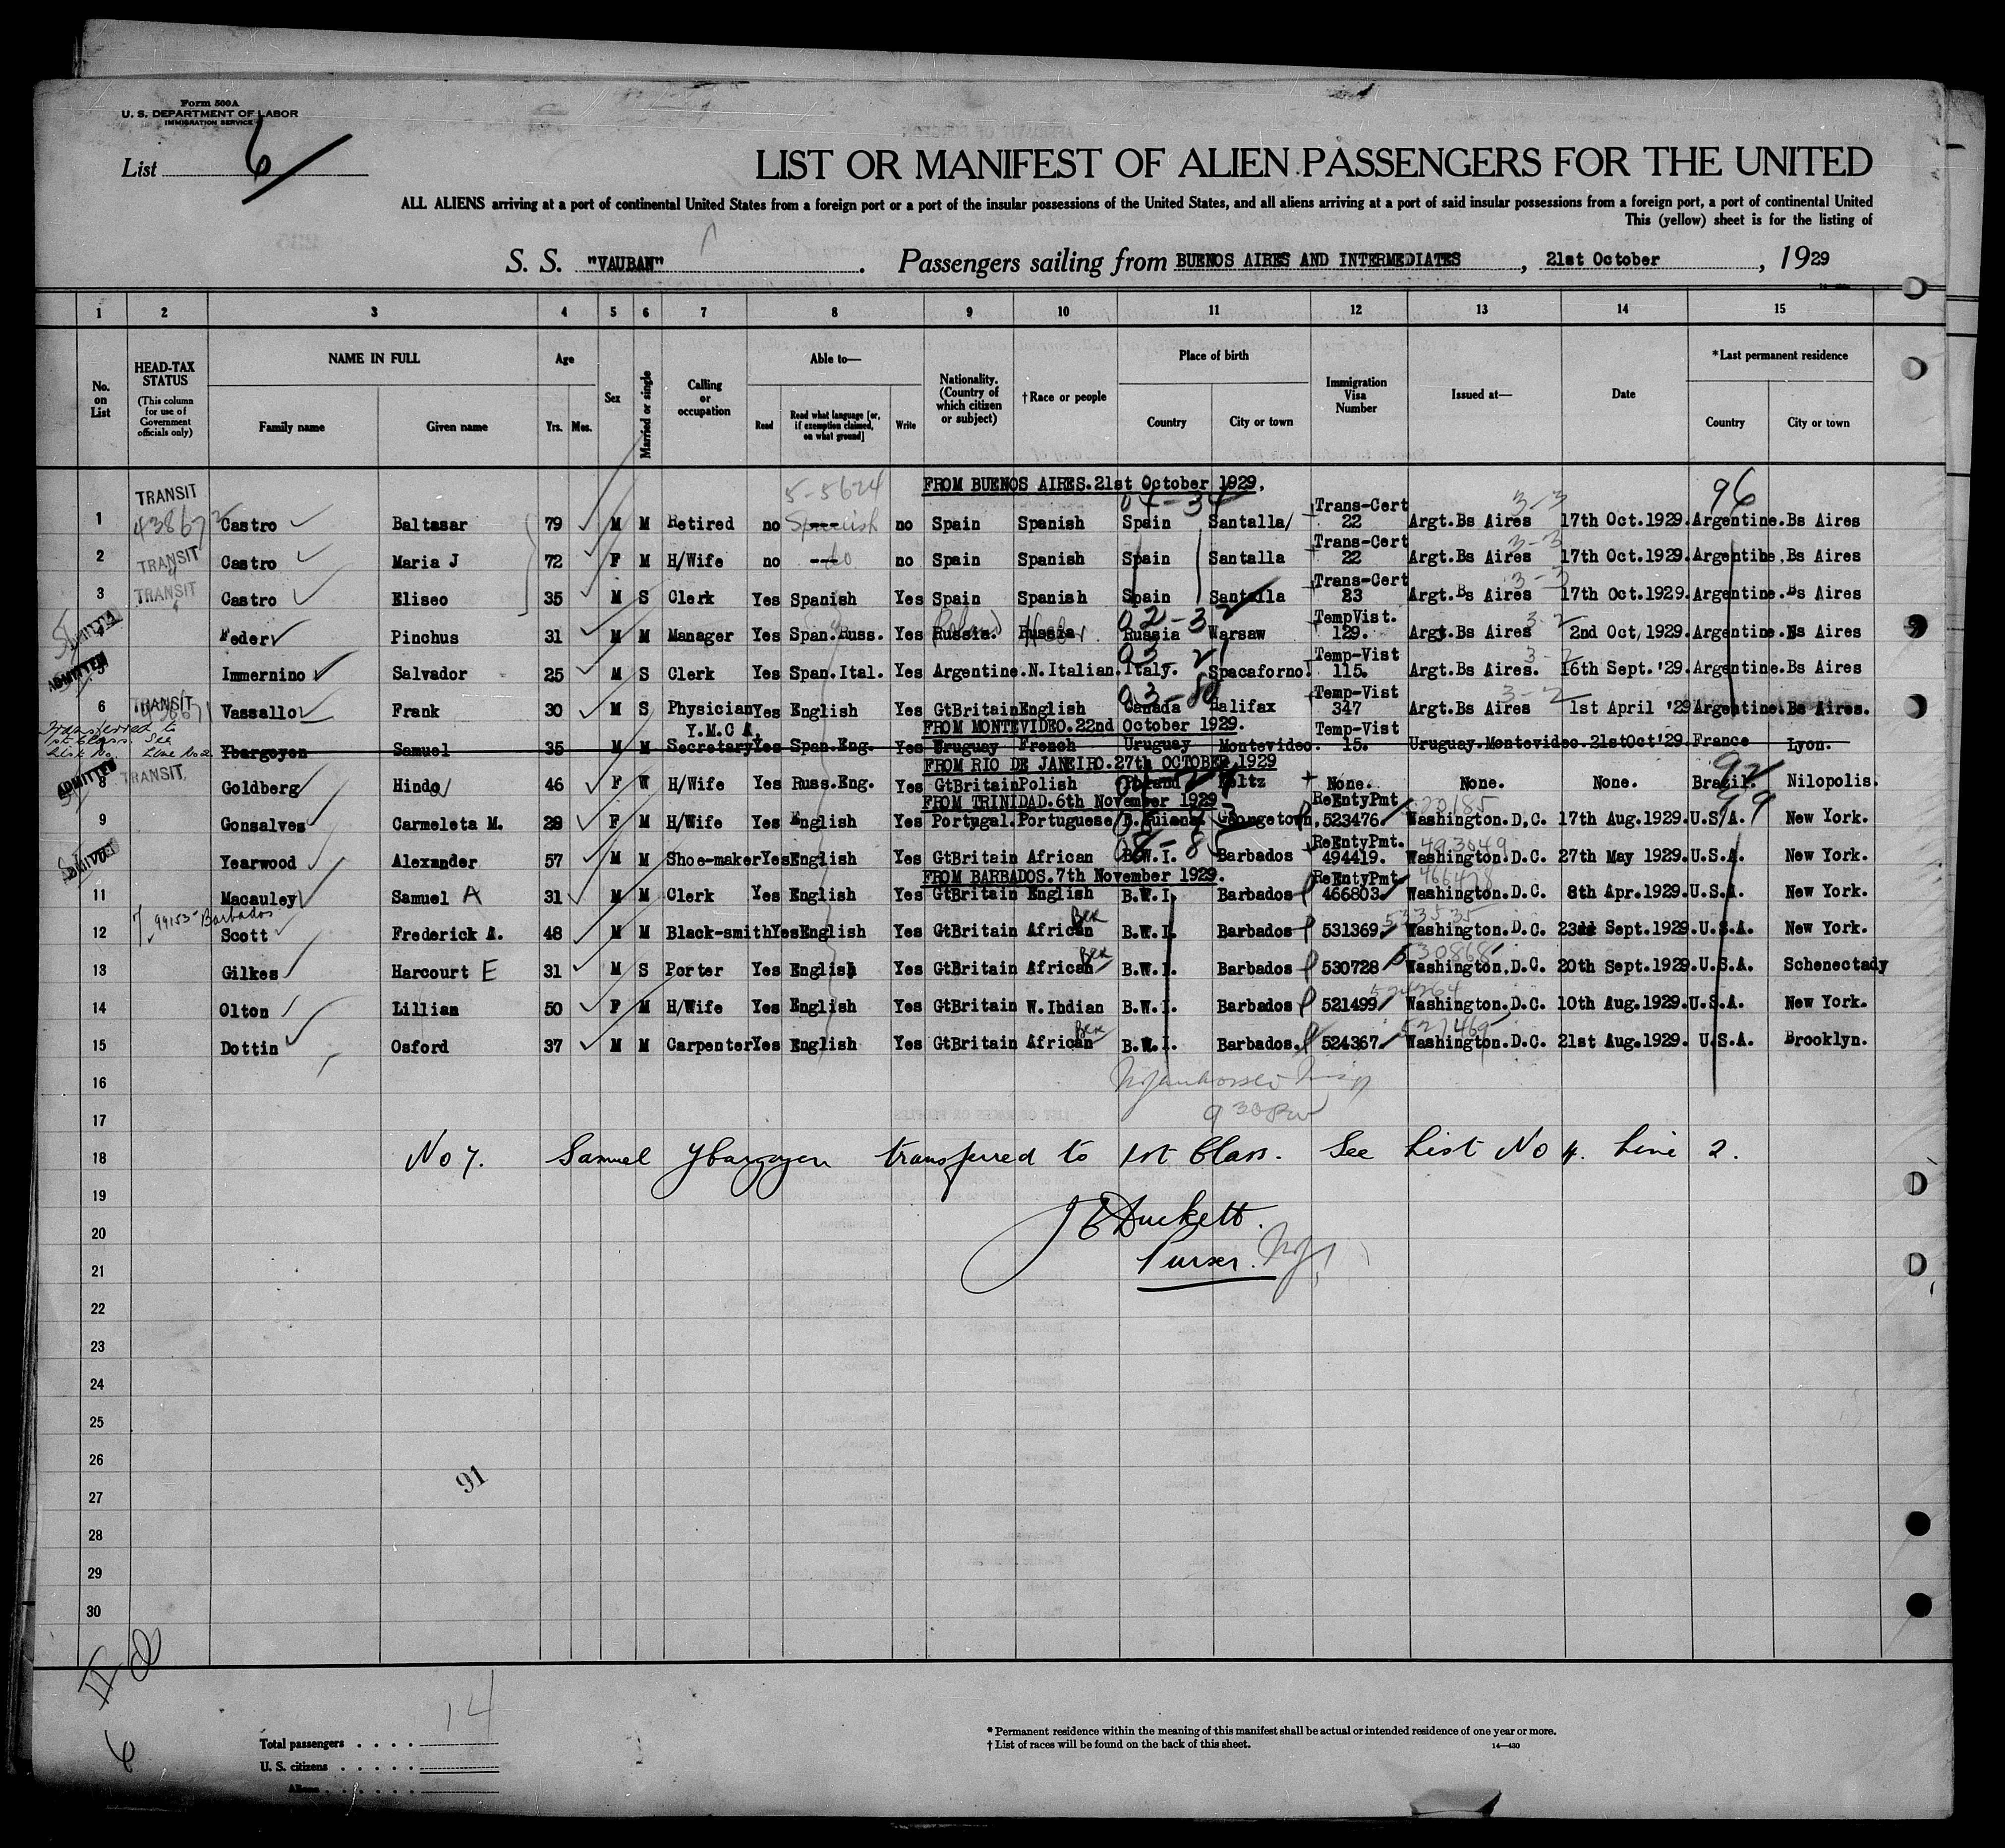 Form 500A
U. S. DEPARTMENT OF LABOR
IMMIGRATION SERVICE
List 6
LIST OR MANIFEST OF ALIEN PASSENGERS FOR THE UNITED
ALL ALIENS arriving at a port of continental United States from a foreign port or a port of the insular possessions of the United States, and all aliens arriving at a port of said insular possessions from a foreign port, a port of continental United
This (yellow) sheet is for the listing of
S. S. "VAUBAN". Passengers sailing from BUENOS AIRES AND INTERMEDIATES, 21st October, 1929
1 2 3 4 5 6 7 8 9 10 11 12 13 14 15
No. on List
HEAD-TAX STATUS (This column for use of Government officials only)
NAME IN FULL Family name Given name
Age Yrs. Mos.
Sex
Married or single
Calling or occupation
Able to— Read Read what language [or, if exemption claimed, on what ground] Write
Nationality. (Country of which citizen or subject)
†Race or people
Place of birth Country City or town
Immigration Visa Number
Issued at—
Date
*Last permanent residence Country City or town
FROM BUENOS AIRES.21st October 1929.
5-5624 96
1 TRANSIT Castro Baltasar 79 M M Retired no Spanish no Spain Spanish Spain Santalla Trans-Cert 22 Argt.Bs Aires 3-3 17th Oct.1929. Argentine. Bs Aires
2 TRANSIT Castro Maria J 72 F M H/Wife no do no Spain Spanish Spain Santalla Trans-Cert 22 Argt.Bs Aires 3-3 17th Oct.1929. Argentine. Bs Aires
3 TRANSIT Castro Eliseo 35 M S Clerk Yes Spanish Yes Spain Spanish Spain Santalla Trans-Cert 23 Argt.Bs Aires 3-3 17th Oct.1929. Argentine. Bs Aires
4 Feder Pinchus 31 M M Manager Yes Span.Russ. Yes Russia. Poland Russia Hebr Russia Warsaw TempVist. 129. Argt.Bs Aires 3-2 2nd Oct,1929. Argentine. Bs Aires
5 ADMITTED Immernino Salvador 25 M S Clerk Yes Span.Ital. Yes Argentine. N.Italian. Italy. Spacaforno. Temp-Vist 115. Argt.Bs Aires. 3-2 16th Sept.'29. Argentine. Bs Aires
6 TRANSIT Vassallo Frank 30 M S Physician Yes English Yes GtBritain English Canada Halifax Temp-Vist 347 Argt.Bs Aires 3-2 1st April '29 Argentine. Bs Aires.
FROM MONTEVIDEO.22nd October 1929.
Transferred to 1st Class. See List No Line No 2
Ybargoyen Samuel 35 M M Y.M.C A. Secretary Yes Span.Eng. Yes Uruguay French Uruguay Montevideo. Temp-Vist 15. Uruguay.Montevideo. 21stOct'29. France Lyon.
FROM RIO DE JANEIRO.27th OCTOBER 1929
8 ADMITTED TRANSIT Goldberg Hindo 46 F W H/Wife Yes Russ.Eng. Yes GtBritain Polish Poland None. None. None. Brazil. Nilopolis.
FROM TRINIDAD.6th November 1929
9 Gonsalves Carmeleta M. 29 F M H/Wife Yes English Yes Portygal. Portuguese B.Guiana Georgetown. ReEntyPmt 523476 Washington.D.C. 17th Aug.1929. U.S.A. New York.
Yearwood Alexander 57 M M Shoe-maker Yes English Yes GtBritain African B.W.I. Barbados ReEntyPmt. 494419. Washington.D.C. 27th May 1929. U.S.A. New York.
FROM BARBADOS.7th November 1929.
11 Macauley Samuel A 31 M M Clerk Yes English Yes GtBritain English B.W.I. Barbados ReEntyPmt 466803 Washington.D.C. 8th Apr.1929. U.S.A. New York.
99153 Barbados
12 Scott Frederick A. 48 M M Black-smith Yes English Yes GtBritain African B.W.I. Barbados 531369 Washington.D.C. 23rd Sept.1929. U.S.A. New York.
13 Gilkes Harcourt E 31 M S Porter Yes English Yes GtBritain African B.W.I. Barbados 530728 Washington.D.C. 20th Sept.1929. U.S.A. Schenectady
14 Olton Lillian 50 F M H/Wife Yes English Yes GtBritain W.Indian B.W.I. Barbados 521499 Washington.D.C. 10th Aug.1929. U.S.A. New York.
15 Dottin Osford 37 M M Carpenter Yes English Yes GtBritain African B.W.I. Barbados. 524367 Washington.D.C. 21st Aug.1929. U.S.A. Brooklyn.
16
17
18 No 7. Samuel Ybargoyen transferred to 1st Class. See List No 4. Line 2.
19
20 J E Duckett.
21 Purser.
22
23
24
25
26
27 91
28
29
30
6
Total passengers 14
U. S. citizens
Aliens
* Permanent residence within the meaning of this manifest shall be actual or intended residence of one year or more.
† List of races will be found on the back of this sheet. 14—430